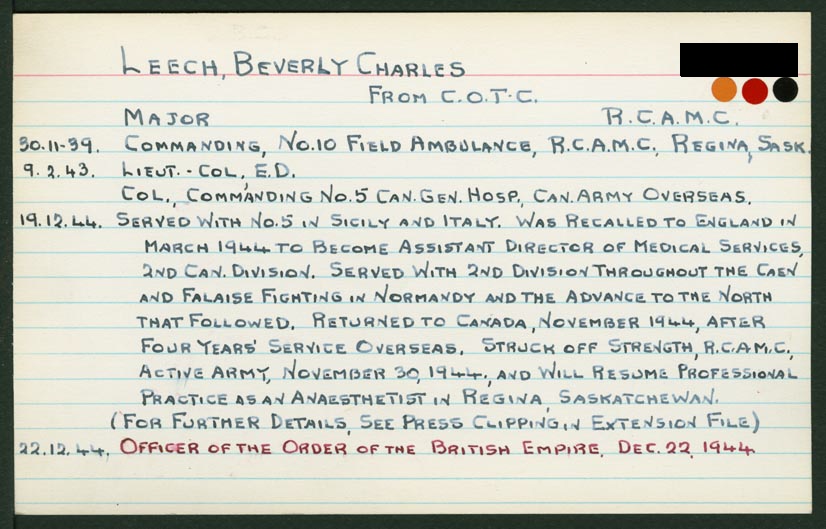 LEECH, BEVERLY CHARLES
FROM C.O.T.C.
MAJOR R.C.A.M.C.
30.11-39. COMMANDING, NO.10 FIELD AMBULANCE, R.C.A.M.C, REGINA, SASK.
9.2.43. LIEUT.-COL, E.D.
COL., COMMANDING NO.5 CAN.GEN.HOSP, CAN.ARMY OVERSEAS.
19.12.44. SERVED WITH NO.5 IN SICILY AND ITALY. WAS RECALLED TO ENGLAND IN
MARCH 1944 TO BECOME ASSISTANT DIRECTOR OF MEDICAL SERVICES,
2ND CAN. DIVISION. SERVED WITH 2ND DIVISION THROUGHOUT THE CAEN
AND FALAISE FIGHTING IN NORMANDY AND THE ADVANCE TO THE NORTH
THAT FOLLOWED. RETURNED TO CANADA, NOVEMBER 1944, AFTER
FOUR YEARS' SERVICE OVERSEAS. STRUCK OFF STRENGTH, R.C.A.M.C.,
ACTIVE ARMY, NOVEMBER 30, 1944, AND WILL RESUME PROFESSIONAL
PRACTICE AS AN ANAESTHETIST IN REGINA, SASKATCHEWAN.
(FOR FURTHER DETAILS, SEE PRESS CLIPPING, IN EXTENSION FILE)
22.12.44. OFFICER OF THE ORDER OF THE BRITISH EMPIRE, DEC. 22, 1944